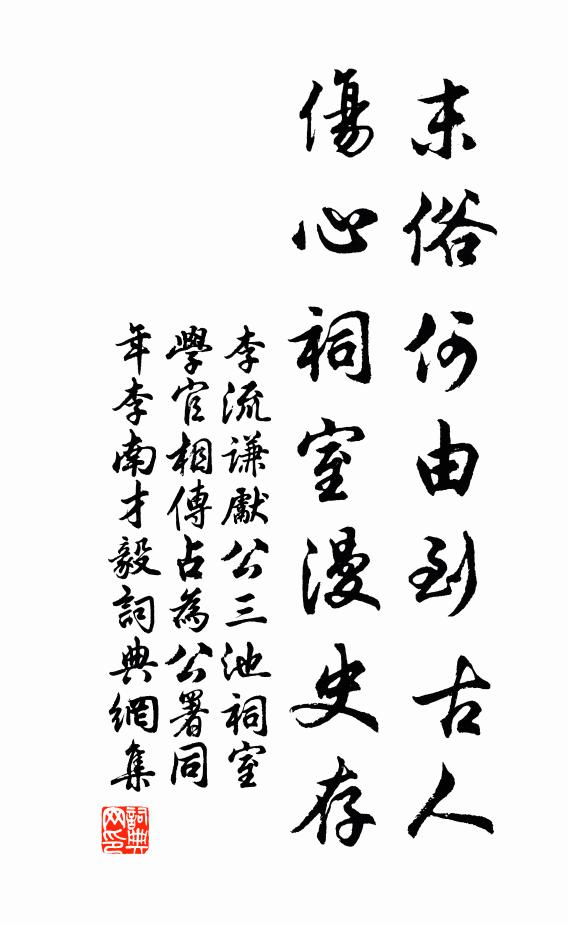 末俗何由到古人
傷心祠室漫史存
李流謙獻公三池祠室
學官相傳占為公署同
年李南才毅詞典網集
詞典網印